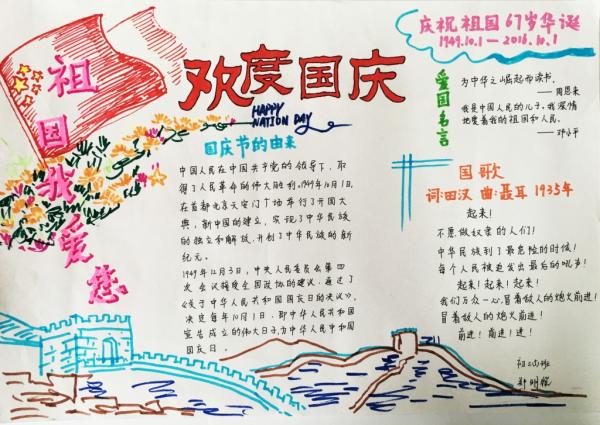 祖国我爱您
欢度国庆
HAPPY
NATION DAY
庆祝祖国67岁华诞
1949.10.1—2016.10.1
爱国名言
为中华之崛起而读书。
——周恩来
我是中国人民的儿子。我深情
地爱着我的祖国和人民。
——邓小平
国庆节的由来
中国人民在中国共产党的领导下，取
得了人民革命的伟大胜利。1949年10月1日，
在首都北京天安门广场举行了开国大
典，新中国的建立，实现了中华民族
的独立和解放，开创了中华民族的新
纪元。
1949年12月3日，中央人民委员会第四
次会议接受全国政协的建议，通过了
《关于中华人民共和国国庆日的决议》，
决定每年10月1日，即中华人民共和国
宣告成立的伟大日子，为中华人民共和国
国庆日。
国歌
词：田汉 曲：聂耳 1935年
起来！
不愿做奴隶的人们！
中华民族到了最危险的时候！
每个人民被迫发出最后的吼声！
起来！起来！起来！
我们万众一心，冒着敌人的炮火前进！
冒着敌人的炮火前进！
前进！前进！进！